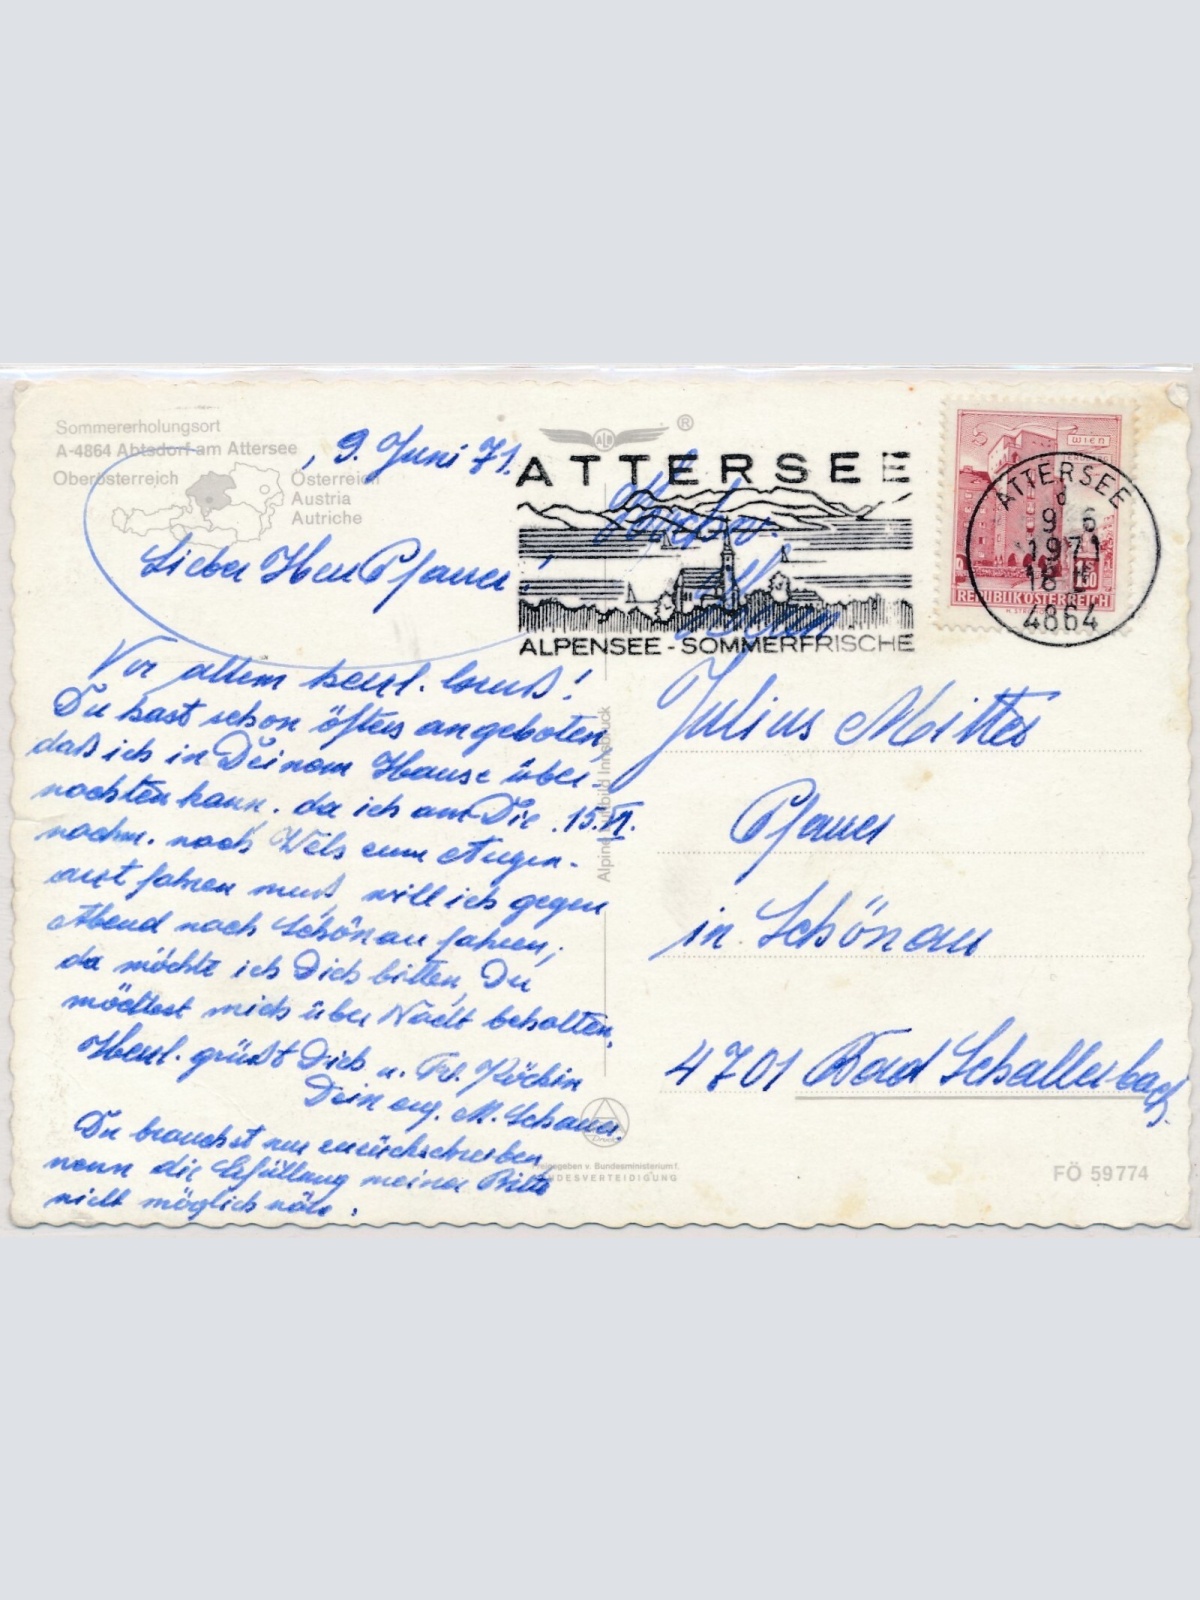 Sommererholungsort
A-4864 Abtsdorf am Attersee
Oberösterreich
Österreich
Austria
Autriche
, 9. Juni 71.
Lieber Herr Pfarrer!
Vor allem herzl. Gruß!
Du hast schon öfters angeboten,
daß ich in Deinem Hause über-
nachten kann. da ich am Die. 15. VI.
nachm. nach Wels zum Augen-
arzt fahren muß, will ich gegen
Abend nach Schönau fahren;
da möchte ich Dich bitten, Du
möchtest mich über Nacht behalten.
Herzl. grüßt Dich u. Frl. Köchin
Dein erg. M. Schauer.
Du brauchst nur zurückschreiben
wenn die Erfüllung meiner Bitte
nicht möglich wäre.
ATTERSEE
ALPENSEE - SOMMERFRISCHE
WIEN
REPUBLIK ÖSTERREICH
ATTERSEE
d
9 6
1971
18
4864
Hochw.
Herrn
Julius Mitter
Pfarrer
in Schönau
4701 Bad Schallerbach
Alpine Luftbild Innsbruck
Freigegeben v. Bundesministerium f.
LANDESVERTEIDIGUNG
FÖ 59774